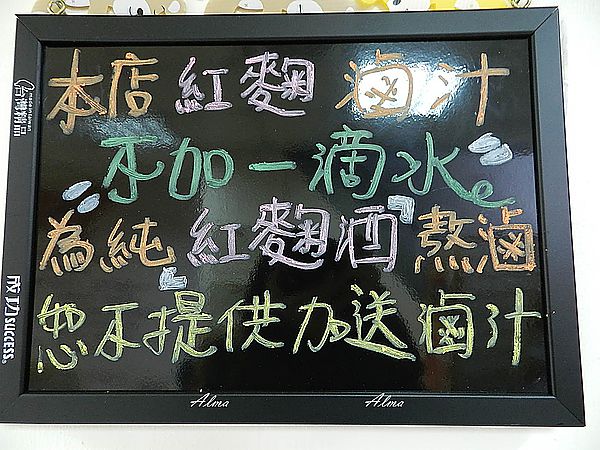 本店紅麴滷汁
不加一滴水
為純紅麴酒熬滷
恕不提供加送滷汁
Alma Alma
成功SUCCESS